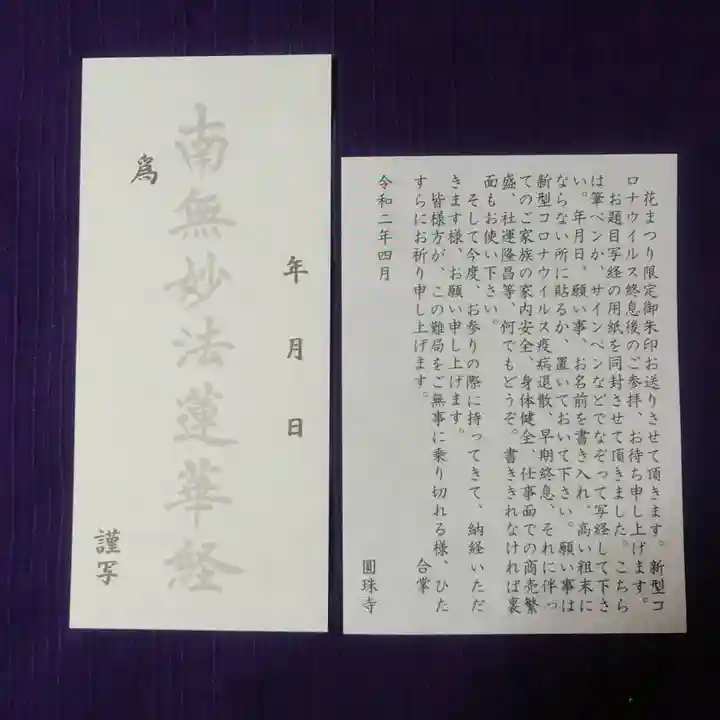 年 月 日
南無妙法蓮華経
爲
謹写
花まつり限定御朱印お送りさせて頂きます。新型コ
ロナウイルス終息後のご参拝、お待ち申し上げます。
お題目写経の用紙を同封させて頂きました。こちら
は筆ペンか、サインペンなどでなぞって写経して下さ
い。年月日、願い事、お名前を書き入れ、高い粗末に
ならない所に貼るか、置いておいて下さい。願い事は
新型コロナウイルス疫病退散、早期終息、それに伴っ
てのご家族の家内安全、身体健全、仕事面での商売繁
盛、社運隆昌等、何でもどうぞ。書ききれなければ裏
面もお使い下さい。
そして今度、お参りの際に持ってきて、納経いただ
きます様、お願い申し上げます。
皆様方が、この難局をご無事に乗り切れる様、ひた
すらにお祈り申し上げます。 合掌
令和二年四月 圓珠寺